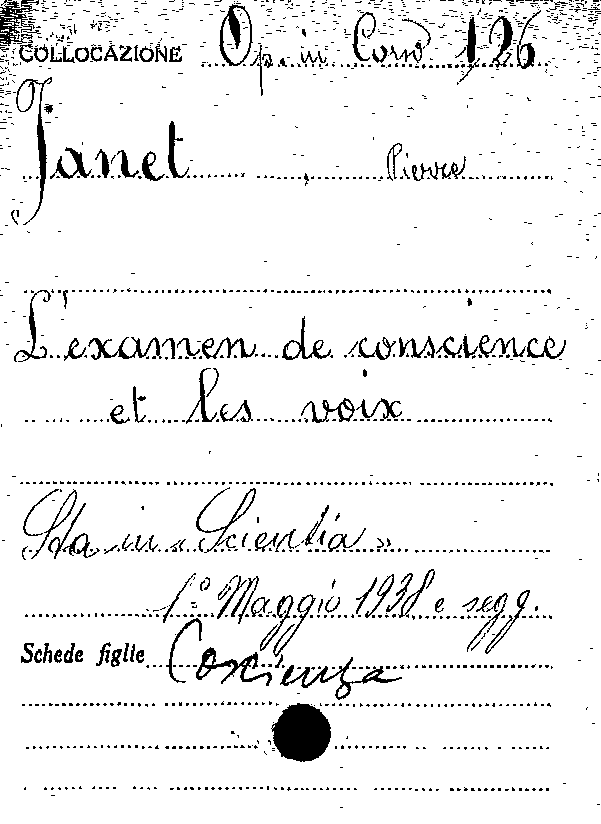 COLLOCAZIONE Op. in Corso 126
Janet, Pierre
L'examen de conscience
et les voix
Sta in « Scientia »
1º Maggio 1938 e segg.
Schede figlie Coscienza